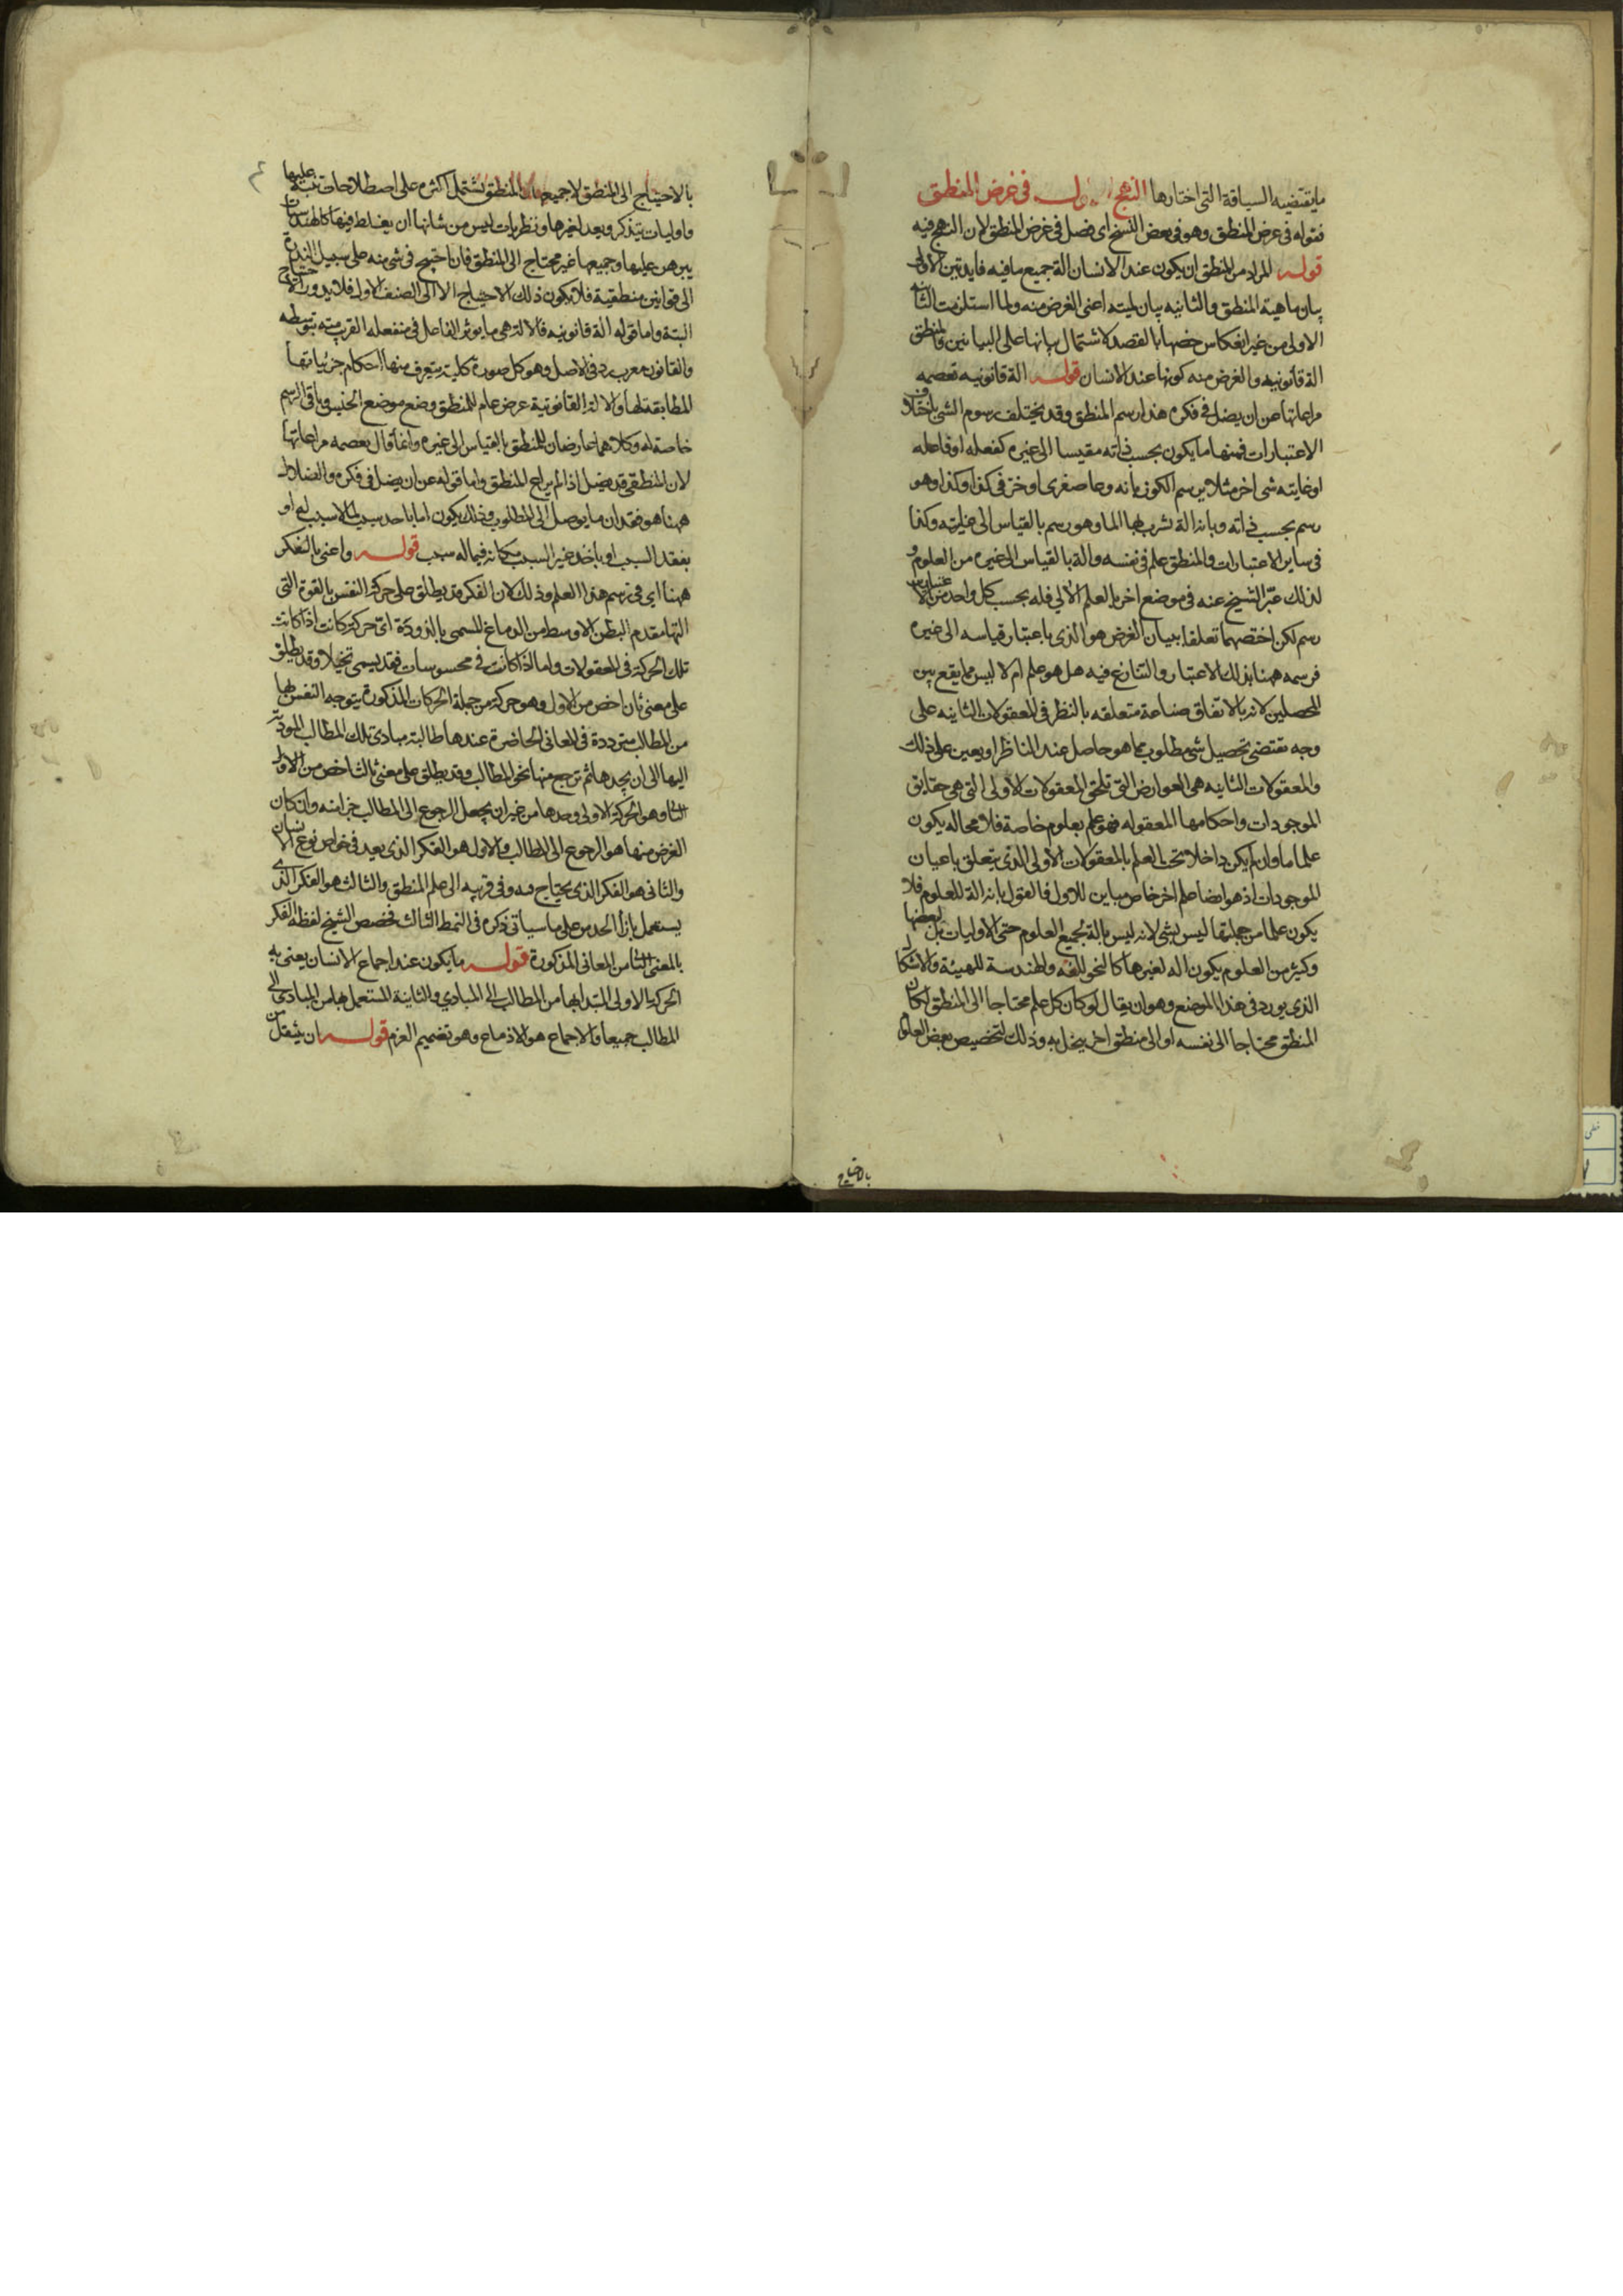 ما يقتضيه السياقة التى اختارها النهج الاول فى غرض المنطق
فقوله فى غرض المنطق وهو فى بعض النسخ اى فصل فى غرض المنطق لان النهج فيه
قوله المراد من المنطق ان يكون عند الانسان الة جميع ما فيه فايدتين الاولى
بيان ماهية المنطق والثانيه بيان لميته اعنى الغرض منه ولما استلزمت الثانيه
الاولى من غير انعكاس خصها بالقصد لاشتمال بيانها على البيانين والمنطق
الة قانونيه والغرض منه كونها عند الانسان قوله الة قانونيه تعصمه
مراعاتها عن ان يضل فى فكره هذا رسم المنطق وقد يختلف رسوم الشى باختلاف
الاعتبارات فمنها ما يكون بحسب ذاته مقيسا الى غيره كفعله او فاعله
او غايته شى اخر مثلا يرسم الكوز بانه وعا صغرى او خزفى كذا وكذا وهو
رسم بحسب ذاته وبانه الة يشرب بها الما وهو رسم بالقياس الى غايته وكذا
فى ساير الاعتبارات والمنطق علم فى نفسه والة بالقياس الى غيره من العلوم و
لذلك عبّر الشيخ عنه فى موضع اخر بالعلم الالي فله بحسب كل واحد من الاعتبارين
رسم لكن اخصهما تعلقا ببيان الغرض هو الذى باعتبار قياسه الى غيره
فرسمه ههنا بذلك الاعتبار والتنازع فيه هل هو علم ام لا ليس مما يقع بين
المحصلين لانه بالاتفاق صناعة متعلقه بالنظر فى المعقولات الثانيه على
وجه تقتضى تحصيل شى مطلوب مما هو حاصل عند الناظر او يعين على ذلك
والمعقولات الثانيه هى العوارض التى تلحق المعقولات الاولى التى هى حقايق
الموجودات واحكامها المعقوله فهو علم بعلوم خاصة فلا محاله يكون
علما ما وان لم يكن داخلا تحت العلم بالمعقولات الاولى الذى يتعلق باعيان
الموجودات اذ هو ايضا علم اخر خاص مباين للاول فالقول بانه الة للعلوم فلا
يكون علما من جملتها ليس بشى لانه ليس بالة لجميع العلوم حتى الاوليات بل بعضها
وكثير من العلوم يكون اله لغيرها كالنحو للغه والهندسة للهيئة والاشكال
الذى يورد فى هذا الموضع وهو ان يقال لو كان كل علم محتاجا الى المنطق لكان
المنطق محتاجا الى نفسه او الى منطق اخر ينحل به وذلك لتخصيص بعض العلوم
بالاحتياج
بالاحتياج الى المنطق لا جميعها والمنطق يشتمل اكثره على اصطلاحات ينبه عليها
واوليات يتذكر ويعد لغيرها ونظريات ليس من شانها ان يغلط فيها كالهندسيات
يبرهن عليها وجميعها غير محتاج الى المنطق فان احتيج فى شى منه على سبيل الندرة
الى قوانين منطقية فلا يكون ذلك الاحتياج الا الى الصنف الاول فلا يدور الاحتياج
البتة واما قوله الة قانونيه فالالة هى ما يوثر الفاعل فى منفعله القريب منه بتوسطه
والقانون معرب رد فى الاصل وهو كل صورة كلية يتعرف منها احكام جزئياتها
المطابقة لها والالة القانونية عرض عام للمنطق وضع موضع الجنس وباقى الرسم
خاصة له وكلاهما عارضان للمنطق بالقياس الى غيره وانما قال تعصمه مراعاتها
لان المنطقى قد يضل اذا لم يراع المنطق واما قوله عن ان يضل فى فكره والضلال
ههنا هو فقدان ما يوصل الى المطلوب وذلك يكون اما باخذ سبب لما لا سبب له او
بفقد السبب او باخذ غير السبب مكانه فيما له سبب قوله واعنى بالفكر
ههنا اي فى رسم هذا العلم وذلك لان الفكر قد يطلق على حركة النفس بالقوة التى
التها مقدم البطن الاوسط من الدماغ المسمى بالدودة اى حركة كانت اذا كانت
تلك الحركة فى المعقولات واما اذا كانت فى محسوسات فقد يسمى تخيلا وقد يطلق
على معنى ثان اخص من الاول وهو حركة من جملة الحركات المذكورة يتوجه النفس بها
من المطالب مترددة فى المعانى الحاضرة عندها طالبة مبادى تلك المطالب المودية
اليها الى ان يجدها ثم ترجع منها نحو المطالب وقد يطلق على معنى ثالث اخص من الاول
الثا وهو الحركة الاولى وحدها من غير ان يجعل الرجوع الى المطالب جزا منه وان كان
الغرض منها هو الرجوع الى المطالب والاول هو الفكر الذى يعد فى خواص نوع الانسان
والثانى هو الفكر الذى يحتاج فيه وفى ترتيبه الى علم المنطق والثالث هو الفكر الذى
يستعمل بازا الحدس على ما سياتى ذكره فى النمط الثالث فخصص الشيخ لفظه الفكر
بالمعنى الثا من المعانى المذكورة قوله ما يكون عند اجماع الانسان يعنى به
الحركة الاولى المبتدا بها من المطالب الى المبادي والثانية المستعمل بها من المبادى الى
المطالب جميعا والاجماع هو الازماع وهو تصميم العزم قوله ان ينتقل من